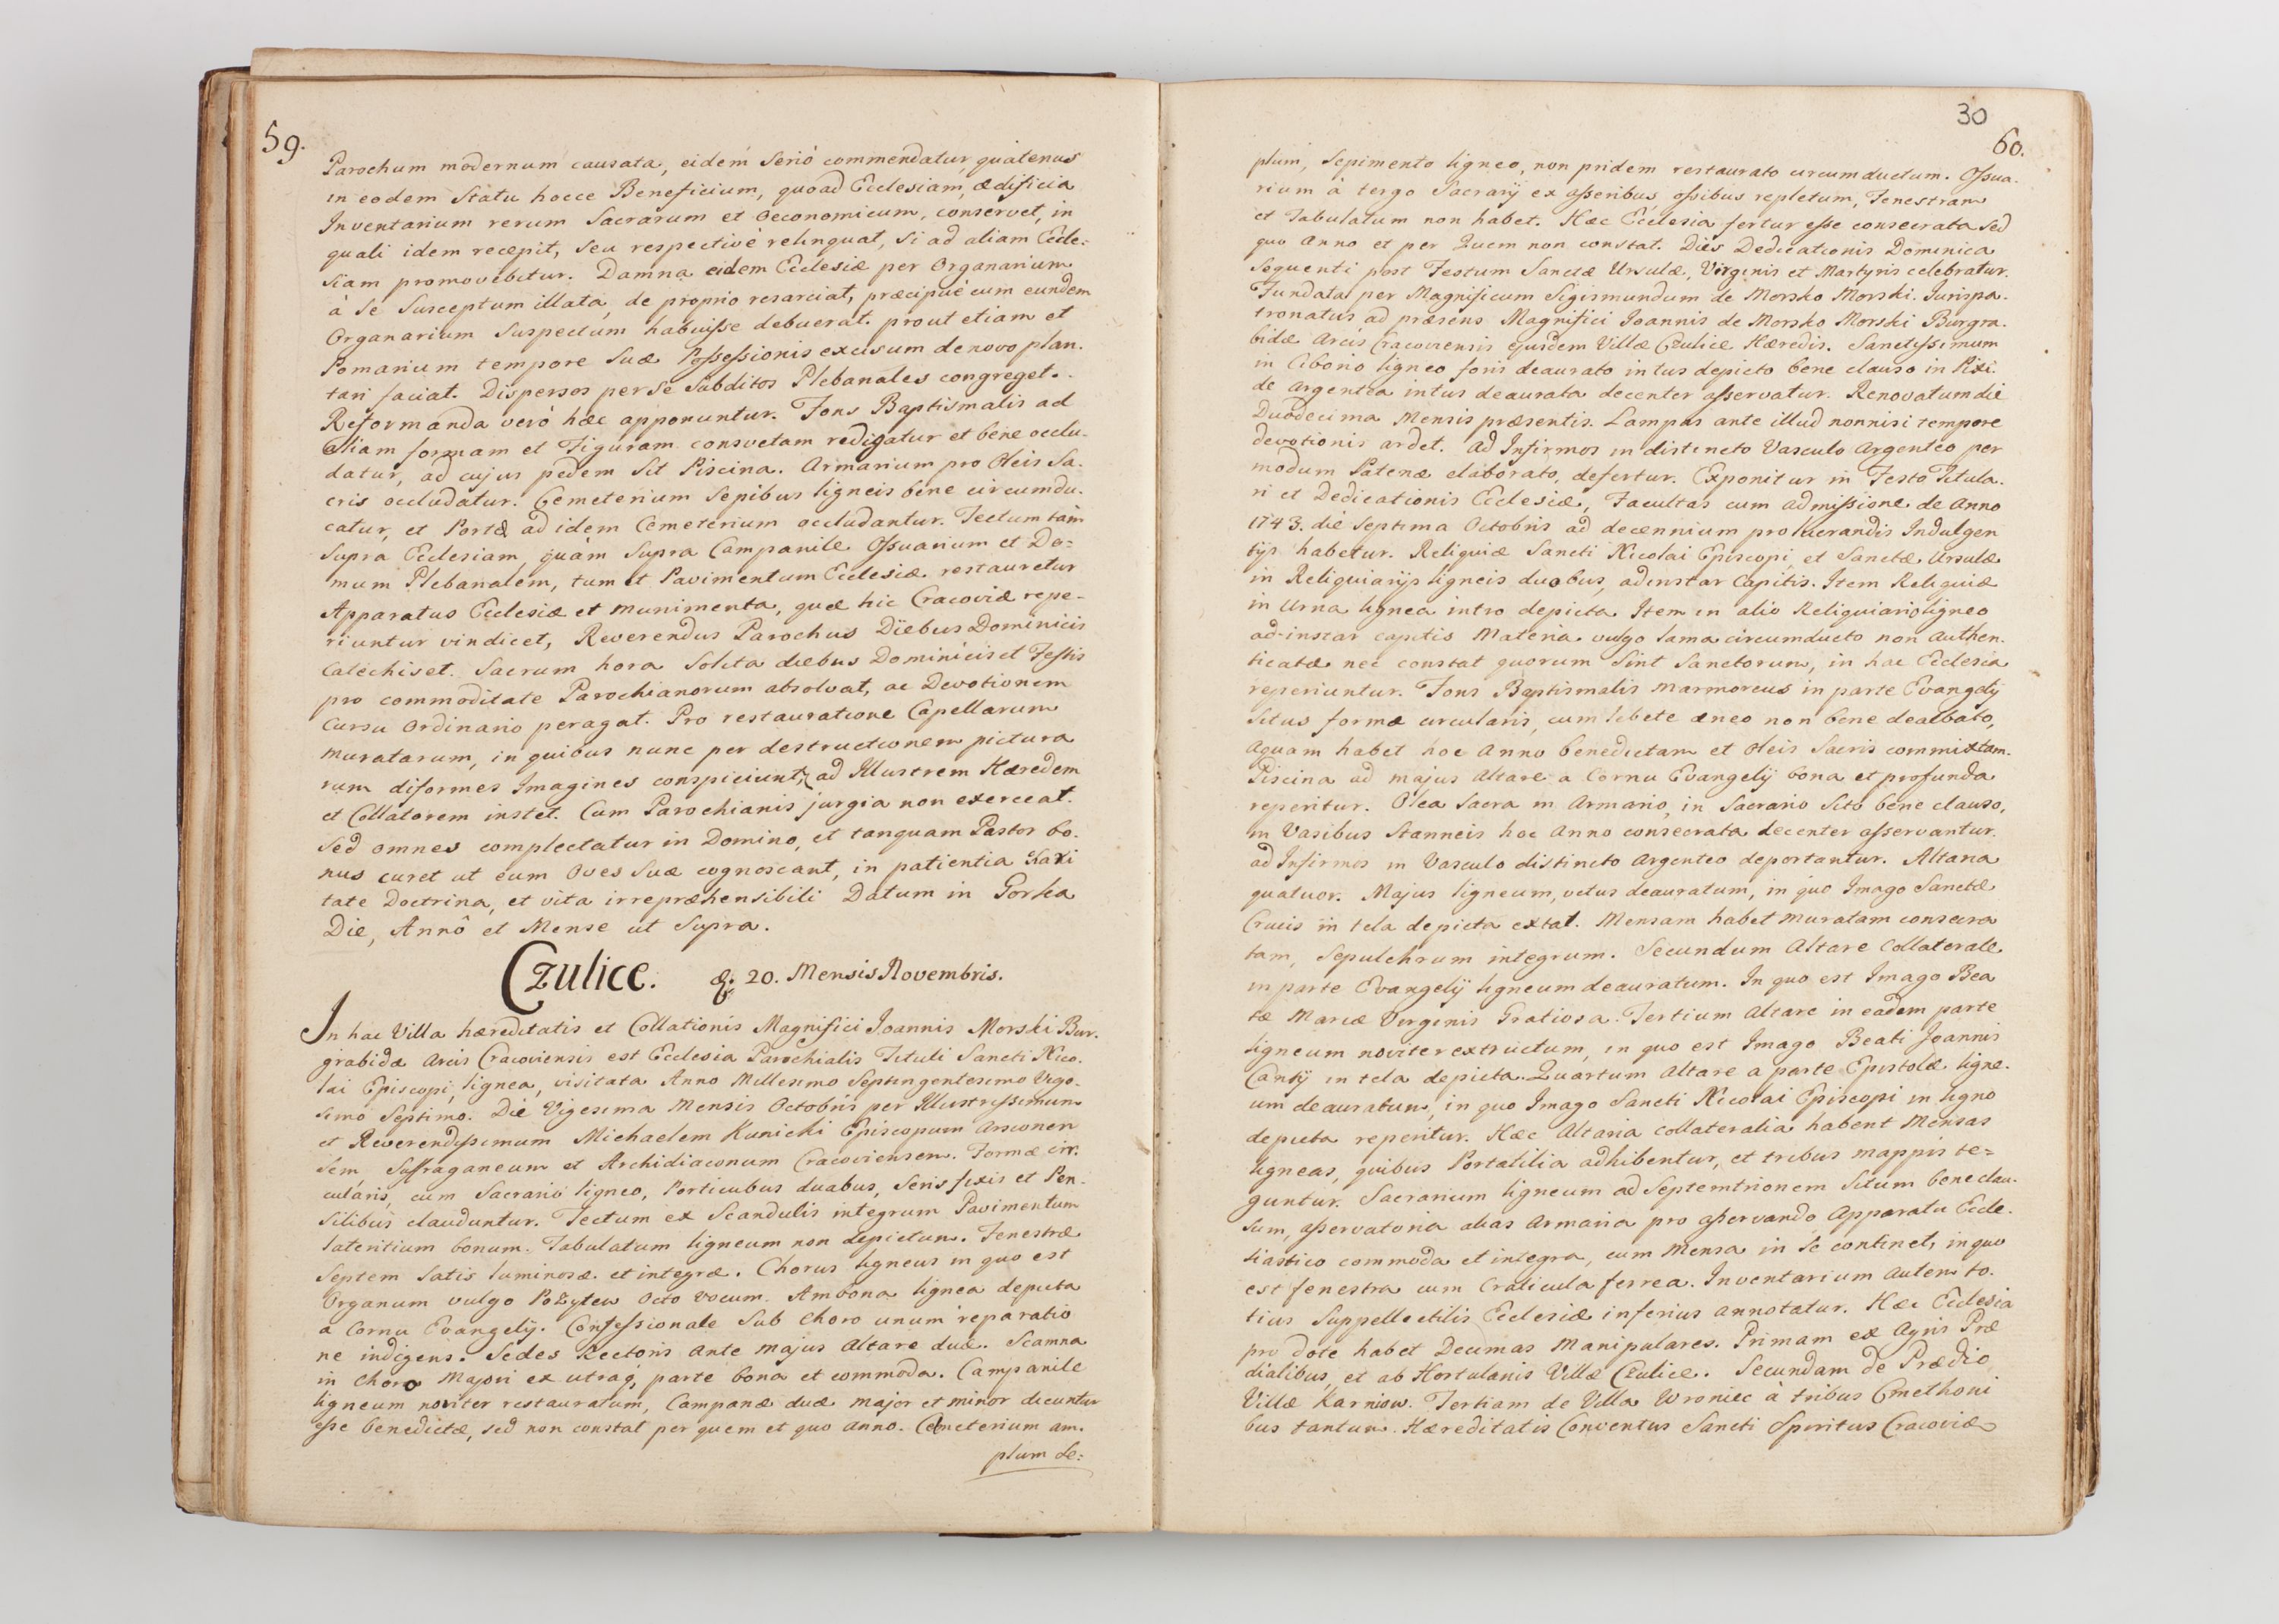 59.
Parochum modernum causata, eidem serió commendatur, quátenus
in eodem Statu hocce Beneficium, quoad Ecclesiam, ædificia
Inventarium rerum Sacrarum et Oeconomicum, conservet, in
quali idem recepit, seu respectivé relinquat, si ad aliam Eccle:
siam promovebitur. Damna eidem Ecclesiæ per Organarium
à se Susceptum illata, de proprio resarciat, præcipué cum eundem
Organarium Suspectum habuisse debuerat. prout etiam et
Pomarium tempore Suæ Possessionis excisum denovo plan.
tari faciat. Dispersos per Se Subditos Plebanales congreget.
Reformanda veró hæc apponuntur. Fons Baptismalis ad
aliam formam et Figuram consvetam redigatur et bene occlu-
datur, ad cujus pedem Sit Piscina. Armarium pro Oleis Sa-
cris occludatur. Cemeterium Sepibus ligneis bene circumdu-
catur, et Portæ ad idem Cemeterium occludantur. Tectum tàm
Supra Ecclesiam, quàm Supra Campanile Ossuarium et Do=
mum Plebanalem, tum et Pavimentum Ecclesiæ restauretur
Apparatus Ecclesiæ et munimenta, quæ hic Cracoviæ repe-
riuntur vindicet, Reverendus Parochus Diebus Dominicis
Catechiset. Sacrum hora Solita diebus Dominicis et Festis
pro commoditate Parochianorum absolvat, ac Devotionem
Cursu Ordinario peragat. Pro restauratione Capellarum
muratarum, in quibus nunc per destructionem pictura
rum diformes Imagines conspiciuntr, ad Illustrem Hæredem
et Collatorem instet. Cum Parochianis jurgia non exerceat.
Sed omnes complectatur in Domino, et tanquam Pastor bo.
nus curet ut eum Oves Suæ cognoscant, in patientia chari
tate Doctrina, et vita irrepræhensibili Datum in Gorka
Die, Annô et Mense ut Supra.
Czulice. 20. Mensis Novembris.
In hac Villa hæreditatis et Collationis Magnifici Joannis Morski Bur.
grabidæ Arcis Cracoviensis est Ecclesia Parochialis Tituli Sancti Nico.
lai Episcopi, lignea, visitata Anno Millesimo Septingentesimo Vige-
simo Septimo. Die Vigesima Mensis Octobris per Illustrissimum
et Reverendissimum Michaelem Kunicki Episcopum Arsconen
sem, Suffraganeum et Archidiaconum Cracoviensem. Formæ cir:
cularis, cum Sacrario ligneo, Porticubus duabus, Seris fixis et Pen-
silibus clauduntur. Tectum ex Scandulis integrum Pavimentum
lateritium bonum. Tabulatum ligneum non depictum. Fenestræ
Septem Satis luminosæ et integræ. Chorus ligneus in quo est
Organum vulgo Pozytew Octo vocum. Ambona lignea depicta
a Cornu Evangelij. Confessionale Sub Choro unum reparatio
ne indigens. Sedes Rectoris ante majus Altare duæ. Scamna
in Choro Majori ex utraq; parte bona et commoda. Campanile
ligneum noviter restauratum, Campanæ duæ major et minor dicuntur
esse benedictæ, sed non constat per quem et quo anno. Cemeterium am.
plum Se:
30
60.
plum, Sepimento ligneo, non pridem restaurato circumductum. Ossua.
rium à tergo Sacrarij ex asseribus, ossibus repletum, Fenestram
et Tabulatum non habet. Hæc Ecclesia fertur esse consecrata Sed
quo Anno et per Quem non constat. Dies Dedicationis Dominica
Sequenti post Festum Sanctæ Ursulæ, Virginis et Martyris celebratur.
Fundata per Magnificum Sigismundum de Morsko Morski. Jurispa.
tronatus ad præsens Magnifici Joannis de Morsko Morski Burgra.
bidæ Arcis Cracoviensis ejusdem Villæ Czulice Hæredis. Sanctissimum
in Ciborio ligneo foris deaurato intus depicto bene clauso in Pixi.
de Argentea intus deaurata decenter asservatur. Renovatum die
Duodecima Mensis præsentis. Lampas ante illud nonnisi tempore
devotionis ardet. Ad Infirmos in distincto Vasculo Argenteo per
modum Patenæ elaborato, defertur. Exponitur in Festo Titula.
ri et Dedicationis Ecclesiæ, Facultas cum admissione de Anno
1743. die Septima Octobris ad decennium pro lucrandis Indulgen
tijs habetur. Reliquiæ Sancti Nicolai Episcopi, et Sanctæ Ursulæ
in Reliquiarijs ligneis duobus, adinstar Capitis. Item Reliquiæ
in Urna lignea intro depicta Item in alio Reliquiario ligneo
ad-instar capitis Materia vulgo lama circumducto non authen.
ticatæ nec constat quorum Sint Sanctorum, in hac Ecclesia
reperiuntur. Fons Baptismalis marmoreus in parte Evangelij
Situs formæ circularis, cum lebete æneo non bene dealbato,
aquam habet hoc Anno benedictam et Oleis Sacris commixtam.
Piscina ad majus Altare a Cornu Evangelij bona et profunda
reperitur. Olea Sacra in Armario, in Sacrario Sito bene clauso,
in Vasibus Stanneis hoc Anno consecrata decenter asservantur.
ad Infirmos in Vasculo distincto Argenteo deportantur. Altaria
quatuor. Majus ligneum, vetus deauratum, in quo Imago Sanctæ
Crucis in tela depicta extat. Mensam habet muratam consecra
tam, Sepulchrum integrum. Secundum Altare Collaterale
in parte Evangelij ligneum deauratum. In quo est Imago Bea
tæ Mariæ Virginis Gratiosa. Tertium Altare in eadem parte
ligneum noviter extructum, in quo est Imago Beati Joannis
Cantij in tela depicta. Quartum Altare a parte Epistolæ ligne.
um deauratum, in quo Imago Sancti Nicolai Episcopi in ligno
depicta reperitur. Hæc Altaria collateralia habent Mensas
ligneas, quibus Portatilia adhibentur, et tribus mappis te=
guntur. Sacrarium ligneum ad Septemtrionem Situm bene clau.
sum, asservatoria alias Armaria pro asservando Apparatu Eccle.
siastico commoda et integra, cum Mensa in Se continet, in quo
est fenestra cum Craticula ferrea. Inventarium autem to.
tius Suppellectilis Ecclesiæ inferius annotatur. Hæc Ecclesia
pro dote habet Decimas Manipulares. Primam ex Agris Præ
dialibus, et ab Hortulanis Villæ Czulice. Secundam de Prædio
Villæ Karniow. Tertiam de Villa Wroniec à tribus Cmethoni
bus tantum. Hæreditatis Conventus Sancti Spiritus Cracoviæ